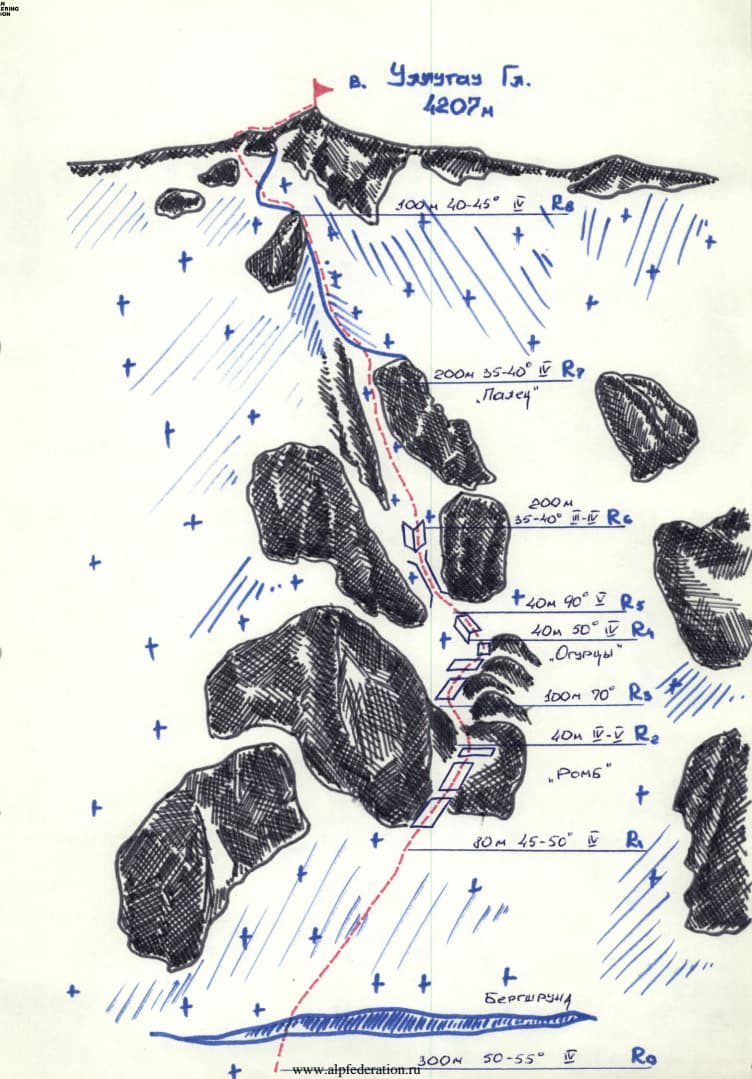 в. Уллутау Гл.
4207м
100м 40-45° IV R8
200м 35-40° IV R7
„Палец"
200м
35-40° III-IV R6
40м 90° V R5
40м 50° IV R4
„Огурцы"
100м 70° R3
40м IV-V R2
„Ромб"
80м 45-50° IV R1
Бергшрунд
300м 50-55° IV R0
www.alpfederation.ru